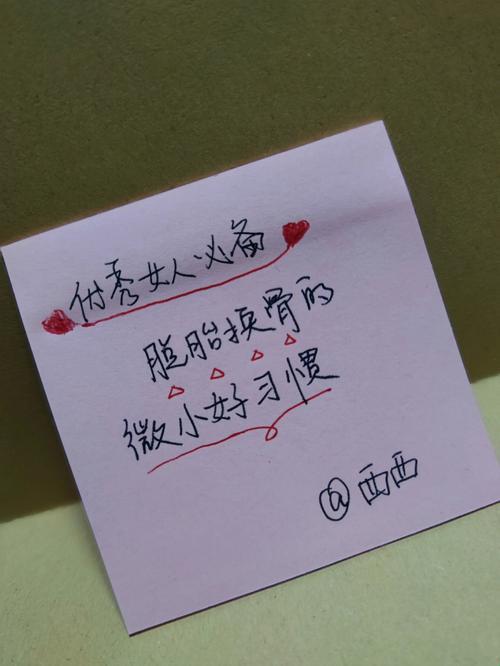 优秀女人必备
脱胎换骨的
微小好习惯
@西西